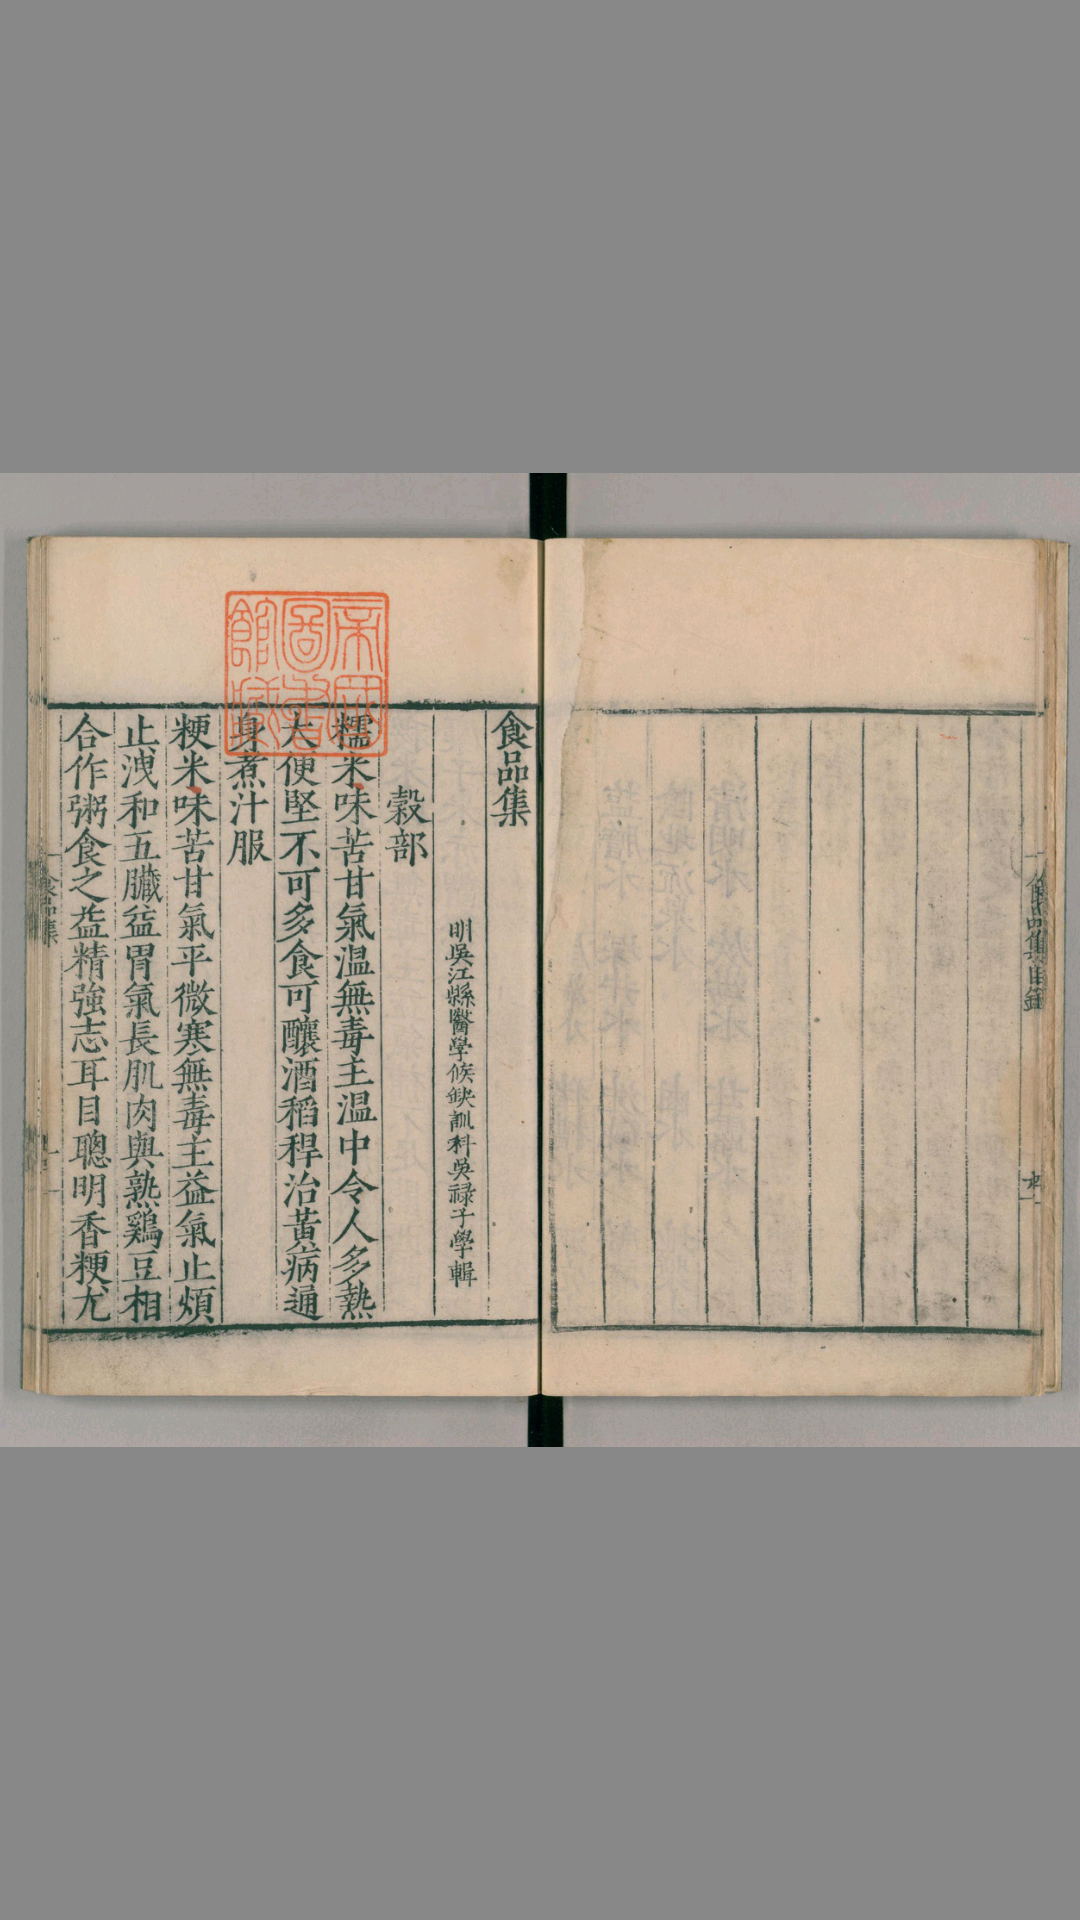 食品集目錄
食品集
明吳江縣醫學候缺訓科吳祿子學輯
穀部
糯米味苦甘氣温無毒主温中令人多熱
大便堅不可多食可釀酒稻稈治黃病通
身煮汁服
粳米味苦甘氣平微寒無毒主益氣止煩
止洩和五臟益胃氣長肌肉與熟鷄豆相
合作粥食之益精強志耳目聰明香粳尤
食品集
一
帝國
圖書
館藏